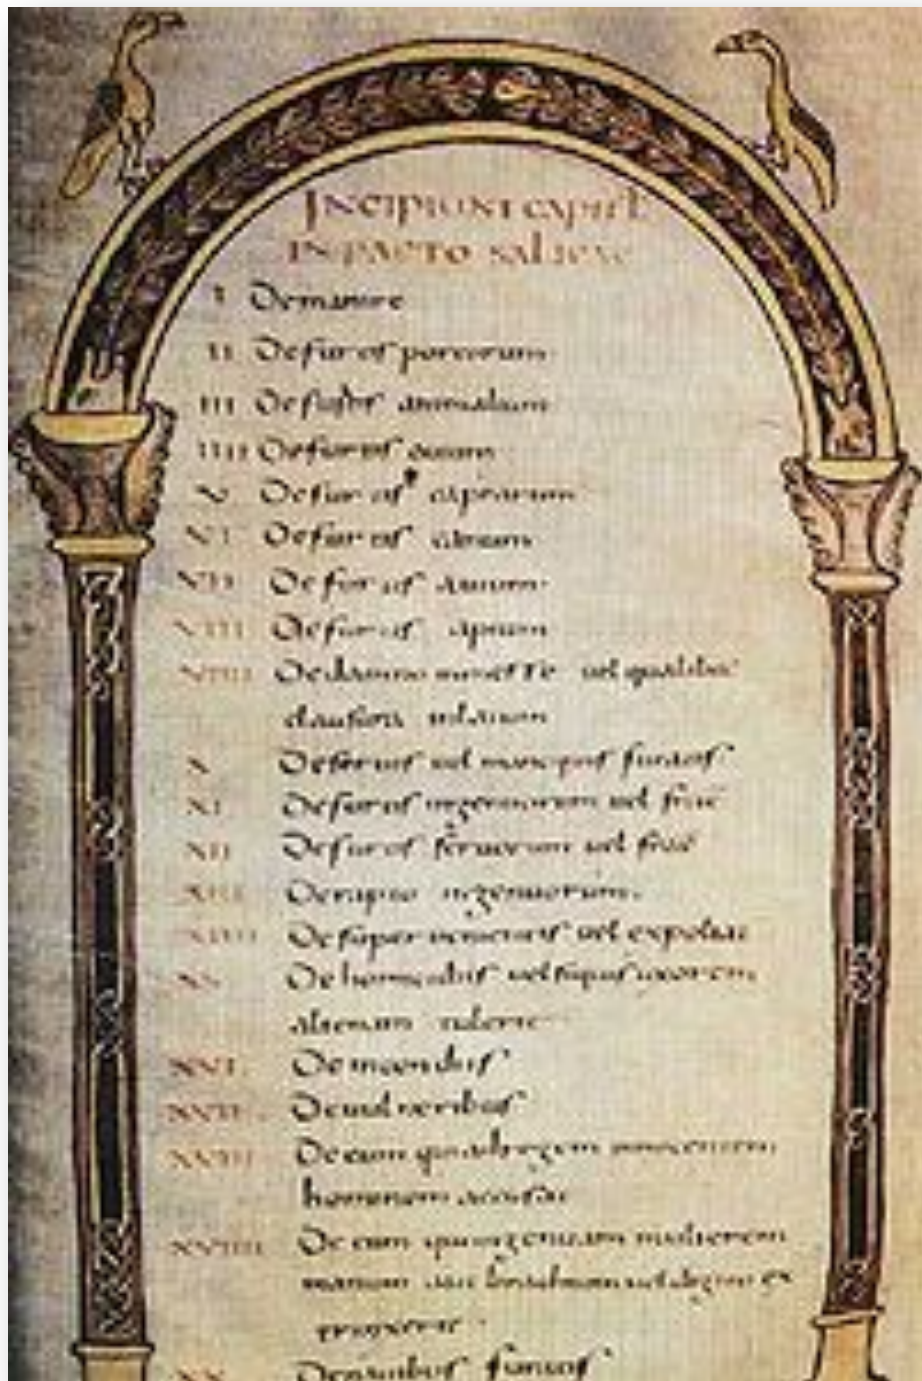 INCIPIUNT CAPITL
IN PACTO SALICAE
I De mannire
II De furtis porcorum
III De furtis animalium
IIII De furtis ouium
V De furtis caprarum
VI De furtis canum
VII De furtis auium
VIII De furtis apium
VIIII De damno in messe uel qualibet
clausura inlatum
X De seruis uel mancipiis furatis
XI De furtis ingenuorum uel
XII De furtis seruorum uel
XIII De rapto ingenuorum
XIIII De superuenientis uel expoliat
XV De homicidiis uel siquis uxorem
alienam tulerit
XVI De incendiis
XVII De uulneribus
XVIII De eum qui ad regem innocentem
hominem accusat
XVIIII De eum qui ingenuam mulierem
manum aut brachium uel digitum ex
trinxerit
XX De nauibus furatis